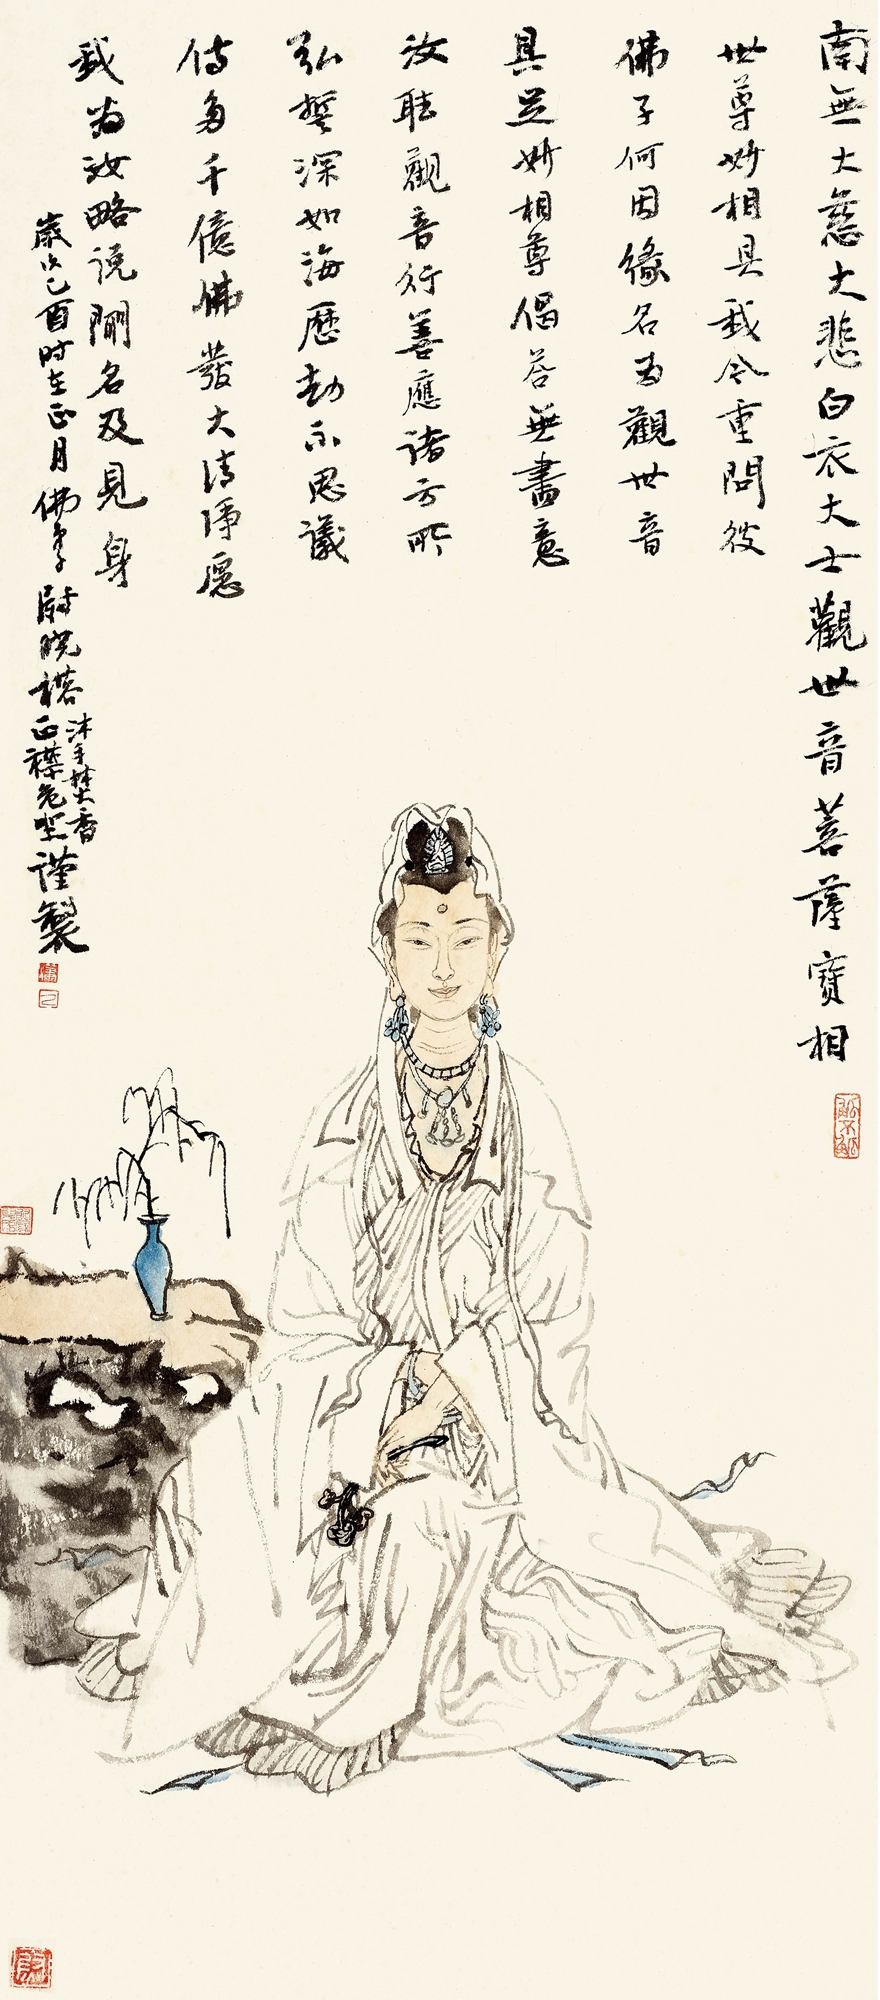 南無大慈大悲白衣大士觀世音菩薩寶相
世尊妙相具我今重問彼
佛子何因緣名為觀世音
具足妙相尊偈答無盡意
汝聽觀音行善應諸方所
弘誓深如海歷劫不思議
侍多千億佛發大清淨愿
我為汝略說聞名及見身
歲次己酉时在正月佛弟子尉晓榕
沐手焚香
正襟危坐
謹製